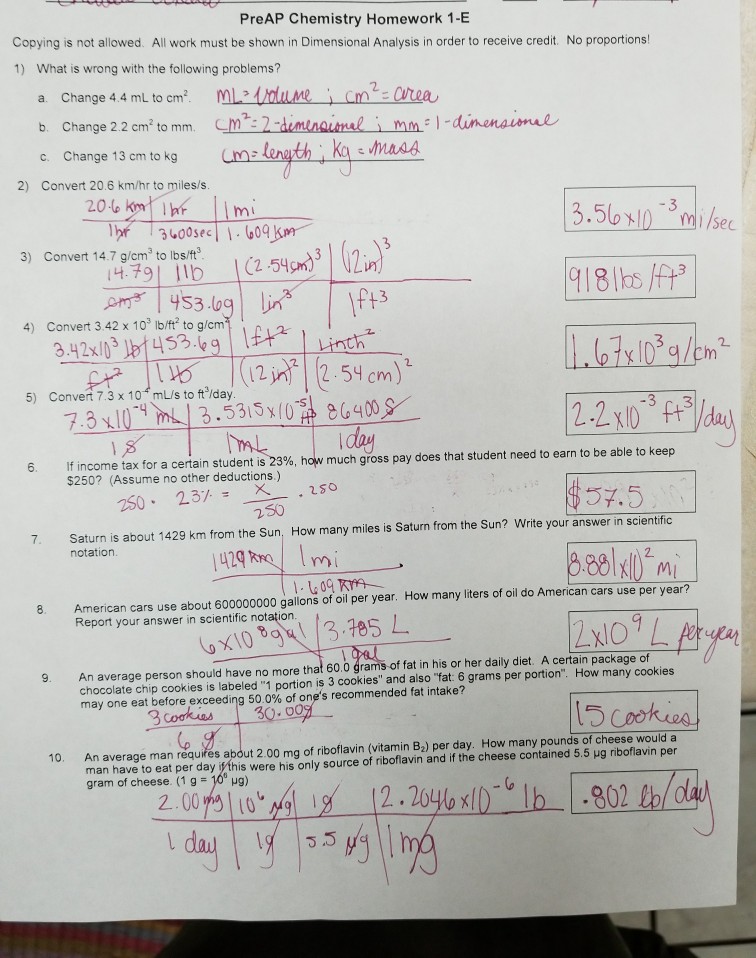 PreAP Chemistry Homework 1-E
Copying is not allowed. All work must be shown in Dimensional Analysis in order to receive credit. No proportions!
1) What is wrong with the following problems?
a. Change 4.4 mL to cm². mL = Volume ; cm² = area
b. Change 2.2 cm² to mm. cm² = 2-dimensional ; mm = 1-dimensional
c. Change 13 cm to kg cm = length ; kg = mass
2) Convert 20.6 km/hr to miles/s.
20.6 km | 1 hr | 1 mi
1 hr | 3600sec | 1.609 km
3.56x10⁻³ mi/sec
3) Convert 14.7 g/cm³ to lbs/ft³.
14.7g | 1lb | (2.54cm)³ | (12in)³
cm³ | 453.6g | 1in³ | 1ft³
918 lbs/ft³
4) Convert 3.42 x 10³ lb/ft² to g/cm²
3.42x10³ lb | 453.6g | 1ft² | 1 inch²
ft² | 1 lb | (12 in)² | (2.54 cm)²
1.67x10³ g/cm²
5) Convert 7.3 x 10⁻⁴ mL/s to ft³/day.
7.3x10⁻⁴ mL | 3.5315x10⁻⁵ ft³ | 86400 s
1 s | 1mL | 1day
2.2x10⁻³ ft³/day
6. If income tax for a certain student is 23%, how much gross pay does that student need to earn to be able to keep
$250? (Assume no other deductions.)
250 · 23% = x/250 · 250
$57.5
7. Saturn is about 1429 km from the Sun. How many miles is Saturn from the Sun? Write your answer in scientific
notation.
1429 km | 1 mi
1.609 km
8.881x10² mi
8. American cars use about 600000000 gallons of oil per year. How many liters of oil do American cars use per year?
Report your answer in scientific notation.
6x10⁸ gal | 3.785 L
1 gal
2x10⁹ L per year
9. An average person should have no more that 60.0 grams of fat in his or her daily diet. A certain package of
chocolate chip cookies is labeled "1 portion is 3 cookies" and also "fat: 6 grams per portion". How many cookies
may one eat before exceeding 50.0% of one's recommended fat intake?
3 cookies | 30.00g
6 g
15 cookies
10. An average man requires about 2.00 mg of riboflavin (vitamin B₂) per day. How many pounds of cheese would a
man have to eat per day if this were his only source of riboflavin and if the cheese contained 5.5 µg riboflavin per
gram of cheese. (1 g = 10⁶ µg)
2.00 mg | 10⁶ µg | 1g | 2.2046x10⁻⁶ lb
1 day | 1g | 5.5 µg | 1 mg
.802 lb/day